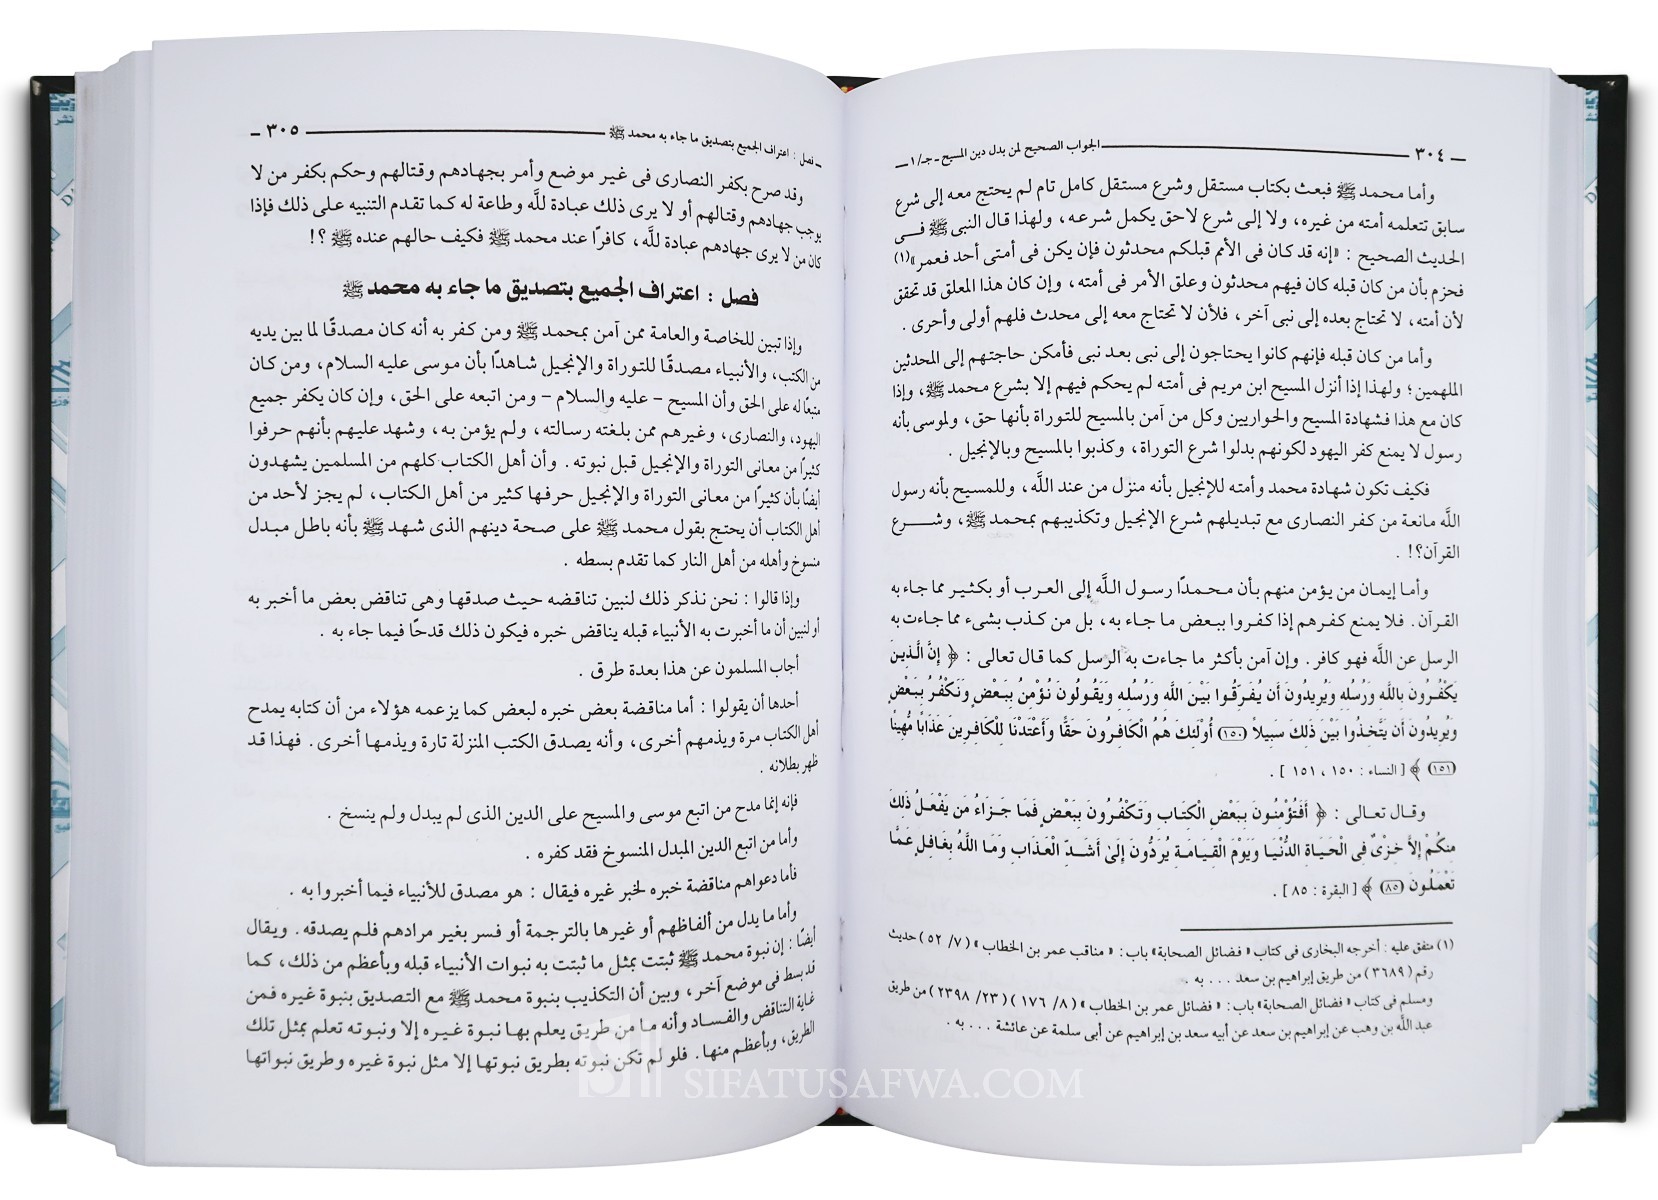 ٣٠٤ الجواب الصحيح لمن بدل دين المسيح ـ جـ/١
وأما محمد ﷺ فبعث بكتاب مستقل وشرع مستقل كامل تام لم يحتج معه إلى شرع
سابق تتعلمه أمته من غيره، ولا إلى شرع لاحق يكمل شرعه، ولهذا قال النبى ﷺ فى
الحديث الصحيح : «إنه قد كان فى الأمم قبلكم محدثون فإن يكن فى أمتى أحد فعمر»(١)
فحزم بأن من كان قبله كان فيهم محدثون وعلق الأمر فى أمته، وإن كان هذا المعلق قد تحقق
لأن أمته، لا تحتاج بعده إلى نبى آخر، فلأن لا تحتاج معه إلى محدث فلهم أولى وأحرى .
وأما من كان قبله فإنهم كانوا يحتاجون إلى نبى بعد نبى فأمكن حاجتهم إلى المحدثين
الملهمين؛ ولهذا إذا أنزل المسيح ابن مريم فى أمته لم يحكم فيهم إلا بشرع محمد ﷺ، وإذا
كان مع هذا فشهادة المسيح والحواريين وكل من آمن بالمسيح للتوراة بأنها حق، ولموسى بأنه
رسول لا يمنع كفر اليهود لكونهم بدلوا شرع التوراة، وكذبوا بالمسيح وبالإنجيل .
فكيف تكون شهادة محمد وأمته للإنجيل بأنه منزل من عند اللَّه، وللمسيح بأنه رسول
اللَّه مانعة من كفر النصارى مع تبديلهم شرع الإنجيل وتكذيبهم بمحمد ﷺ، وشرع
القرآن؟! .
وأما إيمان من يؤمن منهم بأن محمدًا رسول اللَّه إلى العرب أو بكثير مما جاء به
القرآن. فلا يمنع كفرهم إذا كفروا ببعض ما جاء به، بل من كذب بشىء مما جاءت به
الرسل عن اللَّه فهو كافر. وإن آمن بأكثر ما جاءت به الرسل كما قال تعالى : ﴿ إِنَّ الَّذِينَ
يَكْفُرُونَ بِاللَّهِ وَرُسُلِهِ وَيُرِيدُونَ أَن يُفَرِّقُوا بَيْنَ اللَّهِ وَرُسُلِهِ وَيَقُولُونَ نُؤْمِنُ بِبَعْضٍ وَنَكْفُرُ بِبَعْضٍ
وَيُرِيدُونَ أَن يَتَّخِذُوا بَيْنَ ذَلِكَ سَبِيلاً (١٥٠) أُوْلَئِكَ هُمُ الْكَافِرُونَ حَقًّا وَأَعْتَدْنَا لِلْكَافِرِينَ عَذَابًا مُّهِينًا
(١٥١) ﴾ [ النساء : ١٥٠ ، ١٥١ ] .
وقال تعالى : ﴿ أَفَتُؤْمِنُونَ بِبَعْضِ الْكِتَابِ وَتَكْفُرُونَ بِبَعْضٍ فَمَا جَزَاءُ مَن يَفْعَلُ ذَلِكَ
مِنكُمْ إِلاَّ خِزْىٌ فِى الْحَيَاةِ الدُّنْيَا وَيَوْمَ الْقِيَامَةِ يُرَدُّونَ إِلَىٰ أَشَدِّ الْعَذَابِ وَمَا اللَّهُ بِغَافِلٍ عَمَّا
تَعْمَلُونَ (٨٥) ﴾ [ البقرة : ٨٥ ] .
(١) متفق عليه : أخرجه البخارى فى كتاب « فضائل الصحابة» باب : « مناقب عمر بن الخطاب » ( ٧/ ٥٢ ) حديث
رقم ( ٣٦٨٩ ) من طريق إبراهيم بن سعد . . . به .
ومسلم فى كتاب « فضائل الصحابة» باب : « فضائل عمر بن الخطاب » ( ٨/ ١٧٦ ) ( ٢٣/ ٢٣٩٨ ) من طريق
عبد اللَّه بن وهب عن إبراهيم بن سعد عن أبيه سعد بن إبراهيم عن أبى سلمة عن عائشة . . . به .
فصل : اعتراف الجميع بتصديق ما جاء به محمد ﷺ ٣٠٥
وقد صرح بكفر النصارى فى غير موضع وأمر بجهادهم وقتالهم وحكم بكفر من لا
يوجب جهادهم وقتالهم أو لا يرى ذلك عبادة للَّه وطاعة له كما تقدم التنبيه على ذلك فإذا
كان من لا يرى جهادهم عبادة للَّه، كافرًا عند محمد ﷺ فكيف حالهم عنده ﷺ ؟!
فصل : اعتراف الجميع بتصديق ما جاء به محمد ﷺ
وإذا تبين للخاصة والعامة ممن آمن بمحمد ﷺ ومن كفر به أنه كان مصدقًا لما بين يديه
من الكتب، والأنبياء مصدقًا للتوراة والإنجيل شاهدًا بأن موسى عليه السلام، ومن كان
متبعًا له على الحق وأن المسيح – عليه والسلام – ومن اتبعه على الحق، وإن كان يكفر جميع
اليهود، والنصارى، وغيرهم ممن بلغته رسالته، ولم يؤمن به، وشهد عليهم بأنهم حرفوا
كثيرًا من معانى التوراة والإنجيل قبل نبوته . وأن أهل الكتاب كلهم من المسلمين يشهدون
أيضًا بأن كثيرًا من معانى التوراة والإنجيل حرفها كثير من أهل الكتاب، لم يجز لأحد من
أهل الكتاب أن يحتج بقول محمد ﷺ على صحة دينهم الذى شهد ﷺ بأنه باطل مبدل
منسوخ وأهله من أهل النار كما تقدم بسطه .
وإذا قالوا : نحن نذكر ذلك لنبين تناقضه حيث صدقها وهى تناقض بعض ما أخبر به
أو لنبين أن ما أخبرت به الأنبياء قبله يناقض خبره فيكون ذلك قدحًا فيما جاء به .
أجاب المسلمون عن هذا بعدة طرق .
أحدها أن يقولوا : أما مناقضة بعض خبره لبعض كما يزعمه هؤلاء من أن كتابه يمدح
أهل الكتاب مرة ويذمهم أخرى، وأنه يصدق الكتب المنزلة تارة ويذمها أخرى. فهذا قد
ظهر بطلانه .
فإنه إنما مدح من اتبع موسى والمسيح على الدين الذى لم يبدل ولم ينسخ .
وأما من اتبع الدين المبدل المنسوخ فقد كفره .
فأما دعواهم مناقضة خبره لخبر غيره فيقال : هو مصدق للأنبياء فيما أخبروا به .
وأما ما بدل من ألفاظهم أو غيرها بالترجمة أو فسر بغير مرادهم فلم يصدقه. ويقال
أيضًا : إن نبوة محمد ﷺ ثبتت بمثل ما ثبتت به نبوات الأنبياء قبله وبأعظم من ذلك، كما
قد بسط فى موضع آخر، وبين أن التكذيب بنبوة محمد ﷺ مع التصديق بنبوة غيره فمن
غاية التناقض والفساد وأنه ما من طريق يعلم بها نبوة غيره إلا ونبوته تعلم بمثل تلك
الطريق، وبأعظم منها. فلو لم تكن نبوته بطريق نبوتها إلا مثل نبوة غيره وطريق نبواتها
SIFATUSAFWA.COM